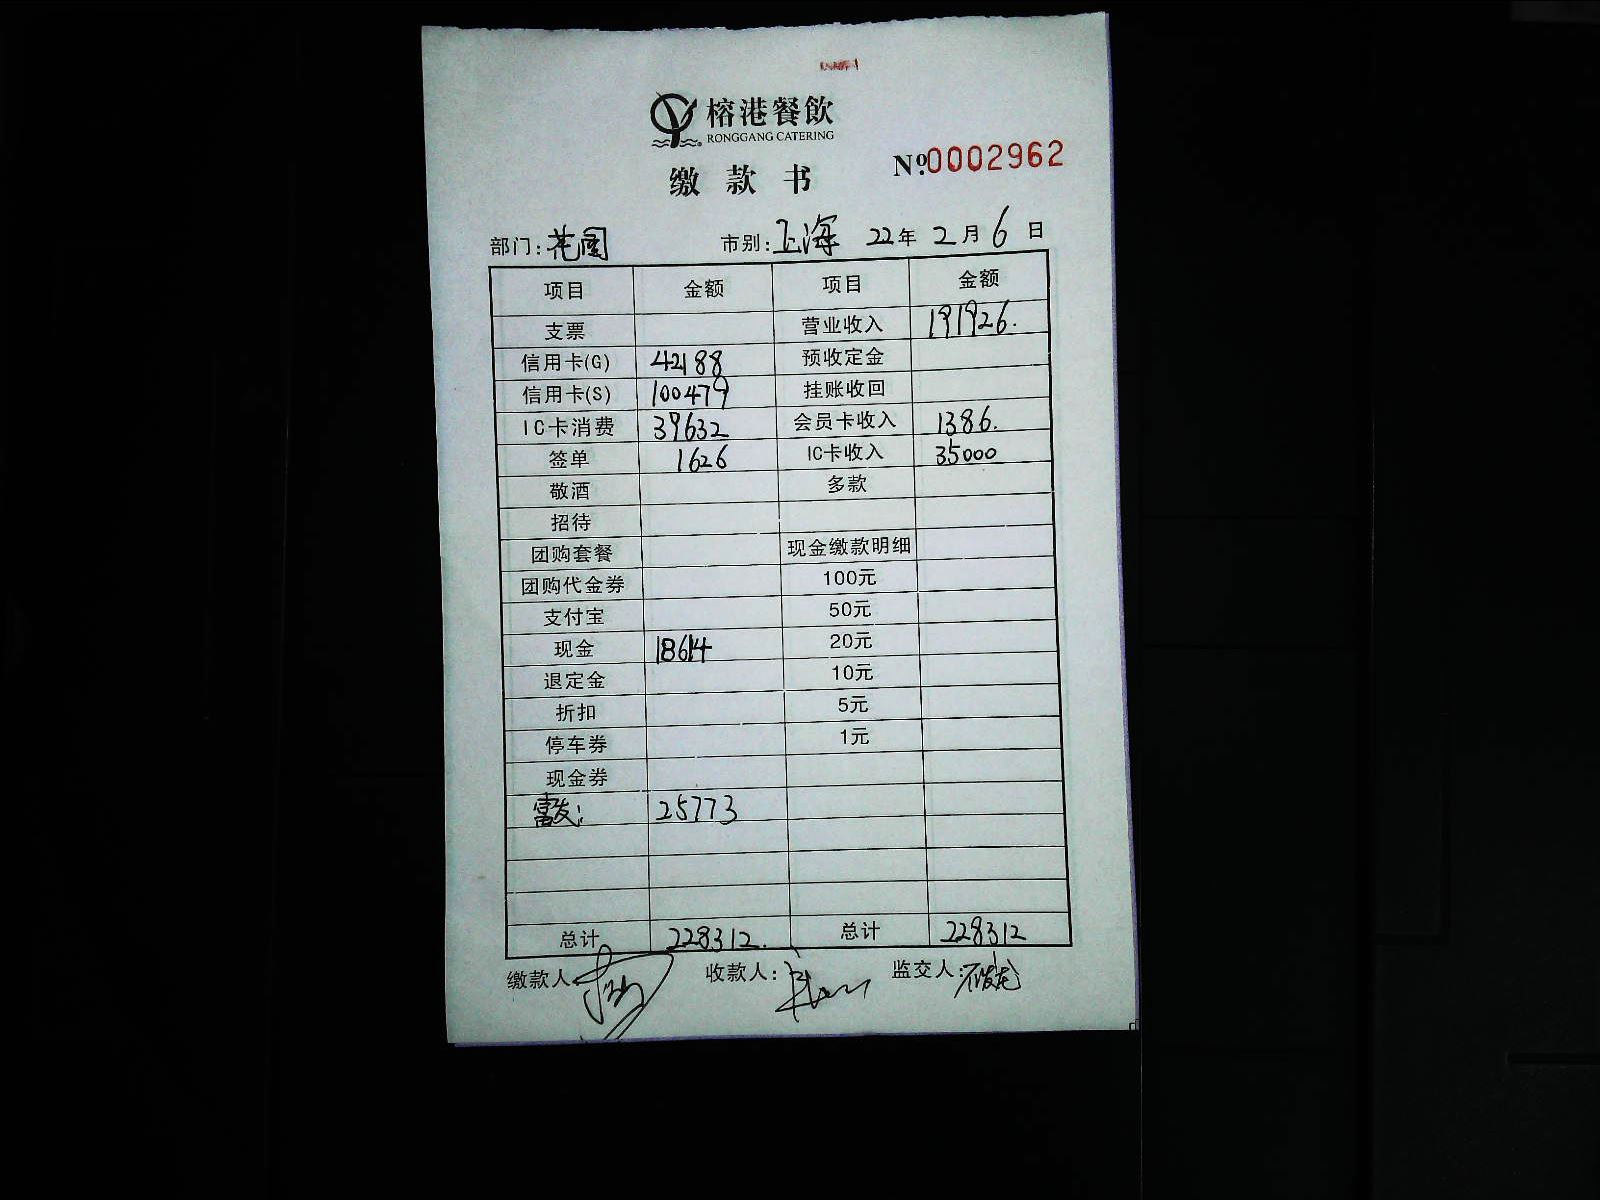 榕港餐飲
RONGGANG CATERING
缴款书
№:0002962
部门:花园 市别:上海 22年2月6日
项目 金额 项目 金额
支票 营业收入 191926.
信用卡(G) 42188 预收定金
信用卡(S) 100479 挂账收回
IC卡消费 39632 会员卡收入 1386.
签单 1626 IC卡收入 35000
敬酒 多款
招待
团购套餐 现金缴款明细
团购代金券 100元
支付宝 50元
现金 18614 20元
退定金 10元
折扣 5元
停车券 1元
现金券
25773
总计 228312. 总计 228312
缴款人: 收款人: 监交人: